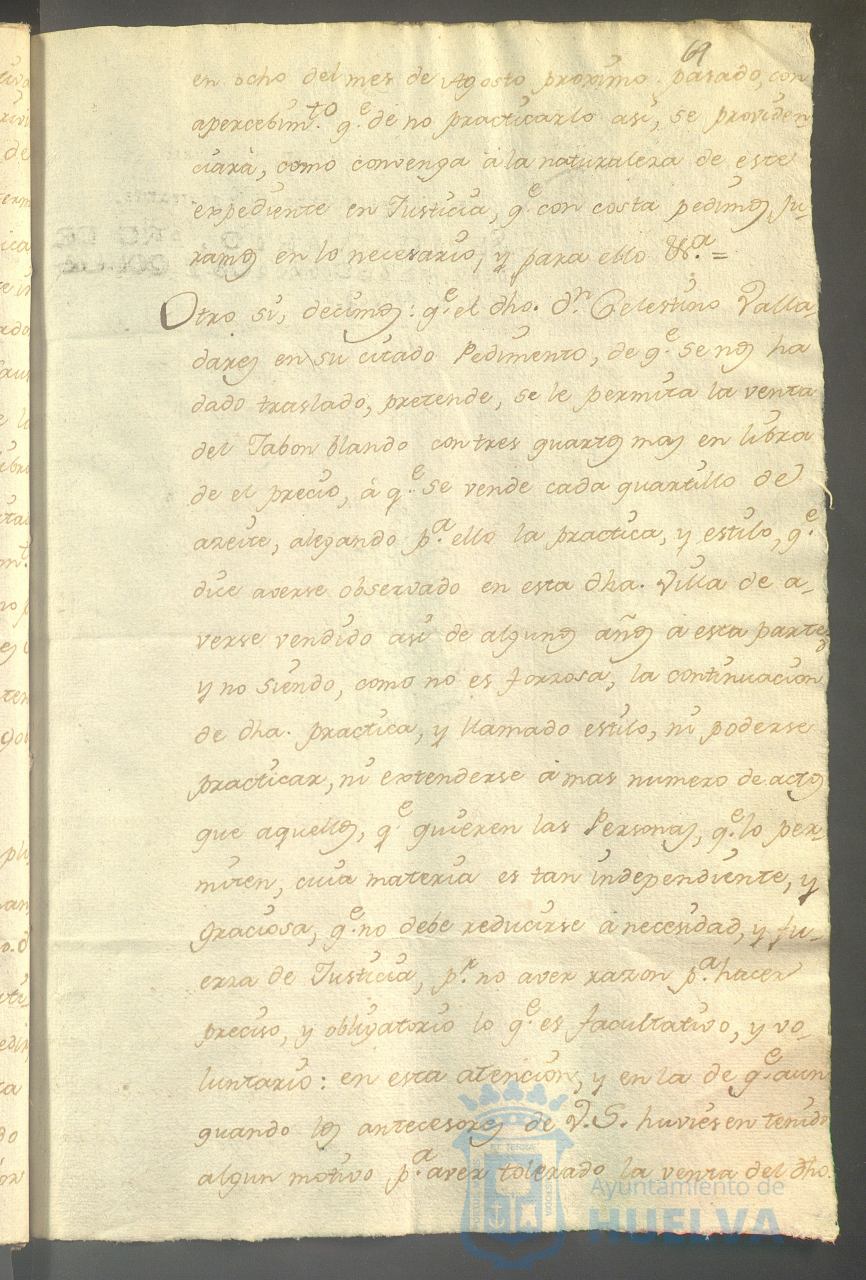 69
en ocho del mes de Agosto proximo pasado, con
apercebim.to q.e de no practicarlo asi, se providen
ciará, como convenga á la naturaleza de este
expediente en Justicia, q.e con costa pedimos, ju-
ramos en lo necesario, y para ello &.a =
Otro si, decimos: q.e el dho. D.n Celestino Valla-
dares en su citado Pedimento, de q.e se nos ha
dado traslado, pretende, se le permita la venta
del Jabon blando con tres quartos mas en libra
de el precio, á q.e se vende cada quartillo de
azeite, alegando p.a ello la practica, y estilo, q.e
dice averse observado en esta dha. Villa de a-
verse vendido asi de algunos años a esta parte,
y no siendo, como no es forzosa, la continuacion
de dha. practica, y llamado estilo, ni poderse
practicar, ni extenderse á mas numero de actos
que aquellos, q.e quieren las Personas, q.e lo per-
miten, cuia materia es tan independiente, y
graciosa, q.e no debe reducirse á necesidad, y fu-
erza de Justicia, p.r no aver razon p.a hacer
preciso, y obligatorio lo q.e es facultativo, y vo-
luntario: en esta atencion, y en la de q.e aun
quando los antecesores de V.S. huviesen tenido
algun motivo p.a aver tolerado la venta del dho.
Ayuntamiento de
HUELVA